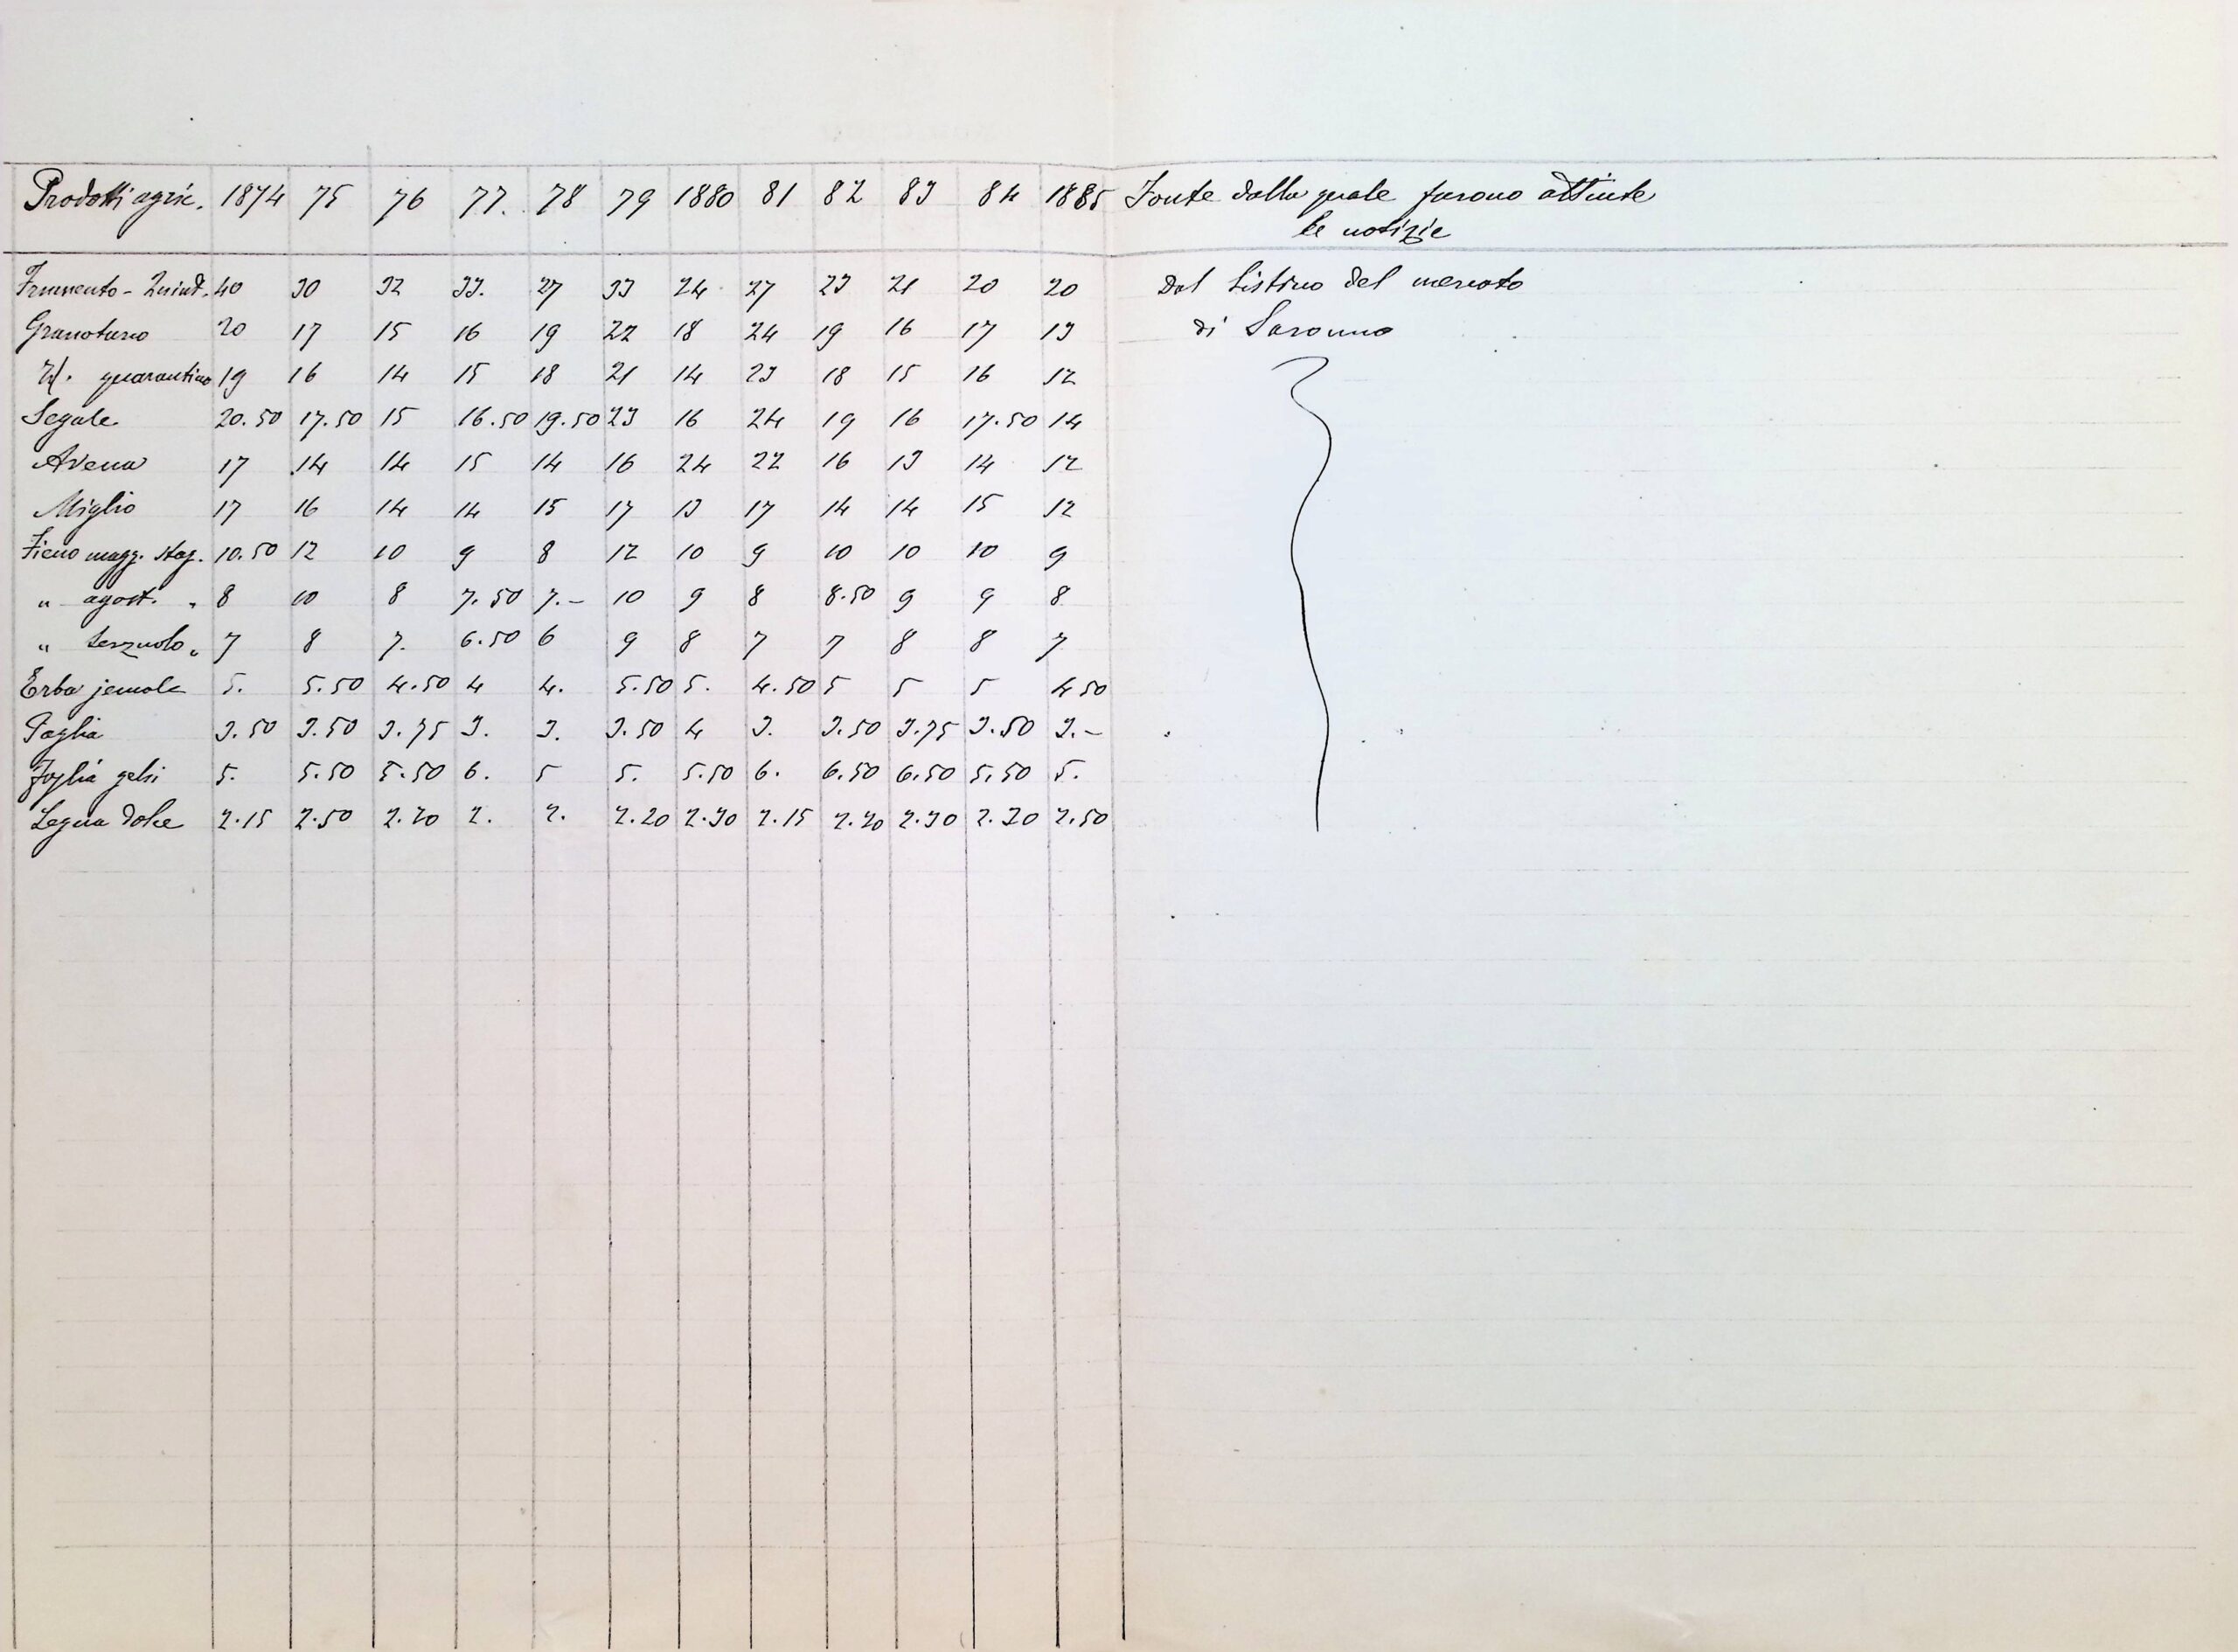 Prodotti agric. 1874 75 76 77. 78 79 1880 81 82 83 84 1885 Fonte dalla quale furono attinte
le notizie
Frumento - Quint. 40 30 32 33. 27 33 24 27 23 21 20 20 Dal Listino del mercato
Granoturco 20 17 15 16 19 22 18 24 19 16 17 13 di Saronno
Id. quarantino 19 16 14 15 18 21 14 23 18 15 16 12
Segale 20.50 17.50 15 16.50 19.50 23 16 24 19 16 17.50 14
Avena 17 14 14 15 14 16 24 22 16 13 14 12
Miglio 17 16 14 14 15 17 13 17 14 14 15 12
Fieno magg. stag. 10.50 12 10 9 8 12 10 9 10 10 10 9
" agost. " 8 10 8 7.50 7.- 10 9 8 8.50 9 9 8
" terzuolo " 7 8 7. 6.50 6 9 8 7 7 8 8 7
Erba jemale 5. 5.50 4.50 4 4. 5.50 5. 4.50 5 5 5 4 50
Paglia 3.50 3.50 3.75 3. 3. 3.50 4 3. 3.50 3.75 3.50 3.-
Foglia gelsi 5. 5.50 5.50 6. 5 5. 5.50 6. 6.50 6.50 5.50 5.
Legna dolce 2.15 2.50 2.20 2. 2. 2.20 2.30 2.15 2.20 2.30 2.30 2.50